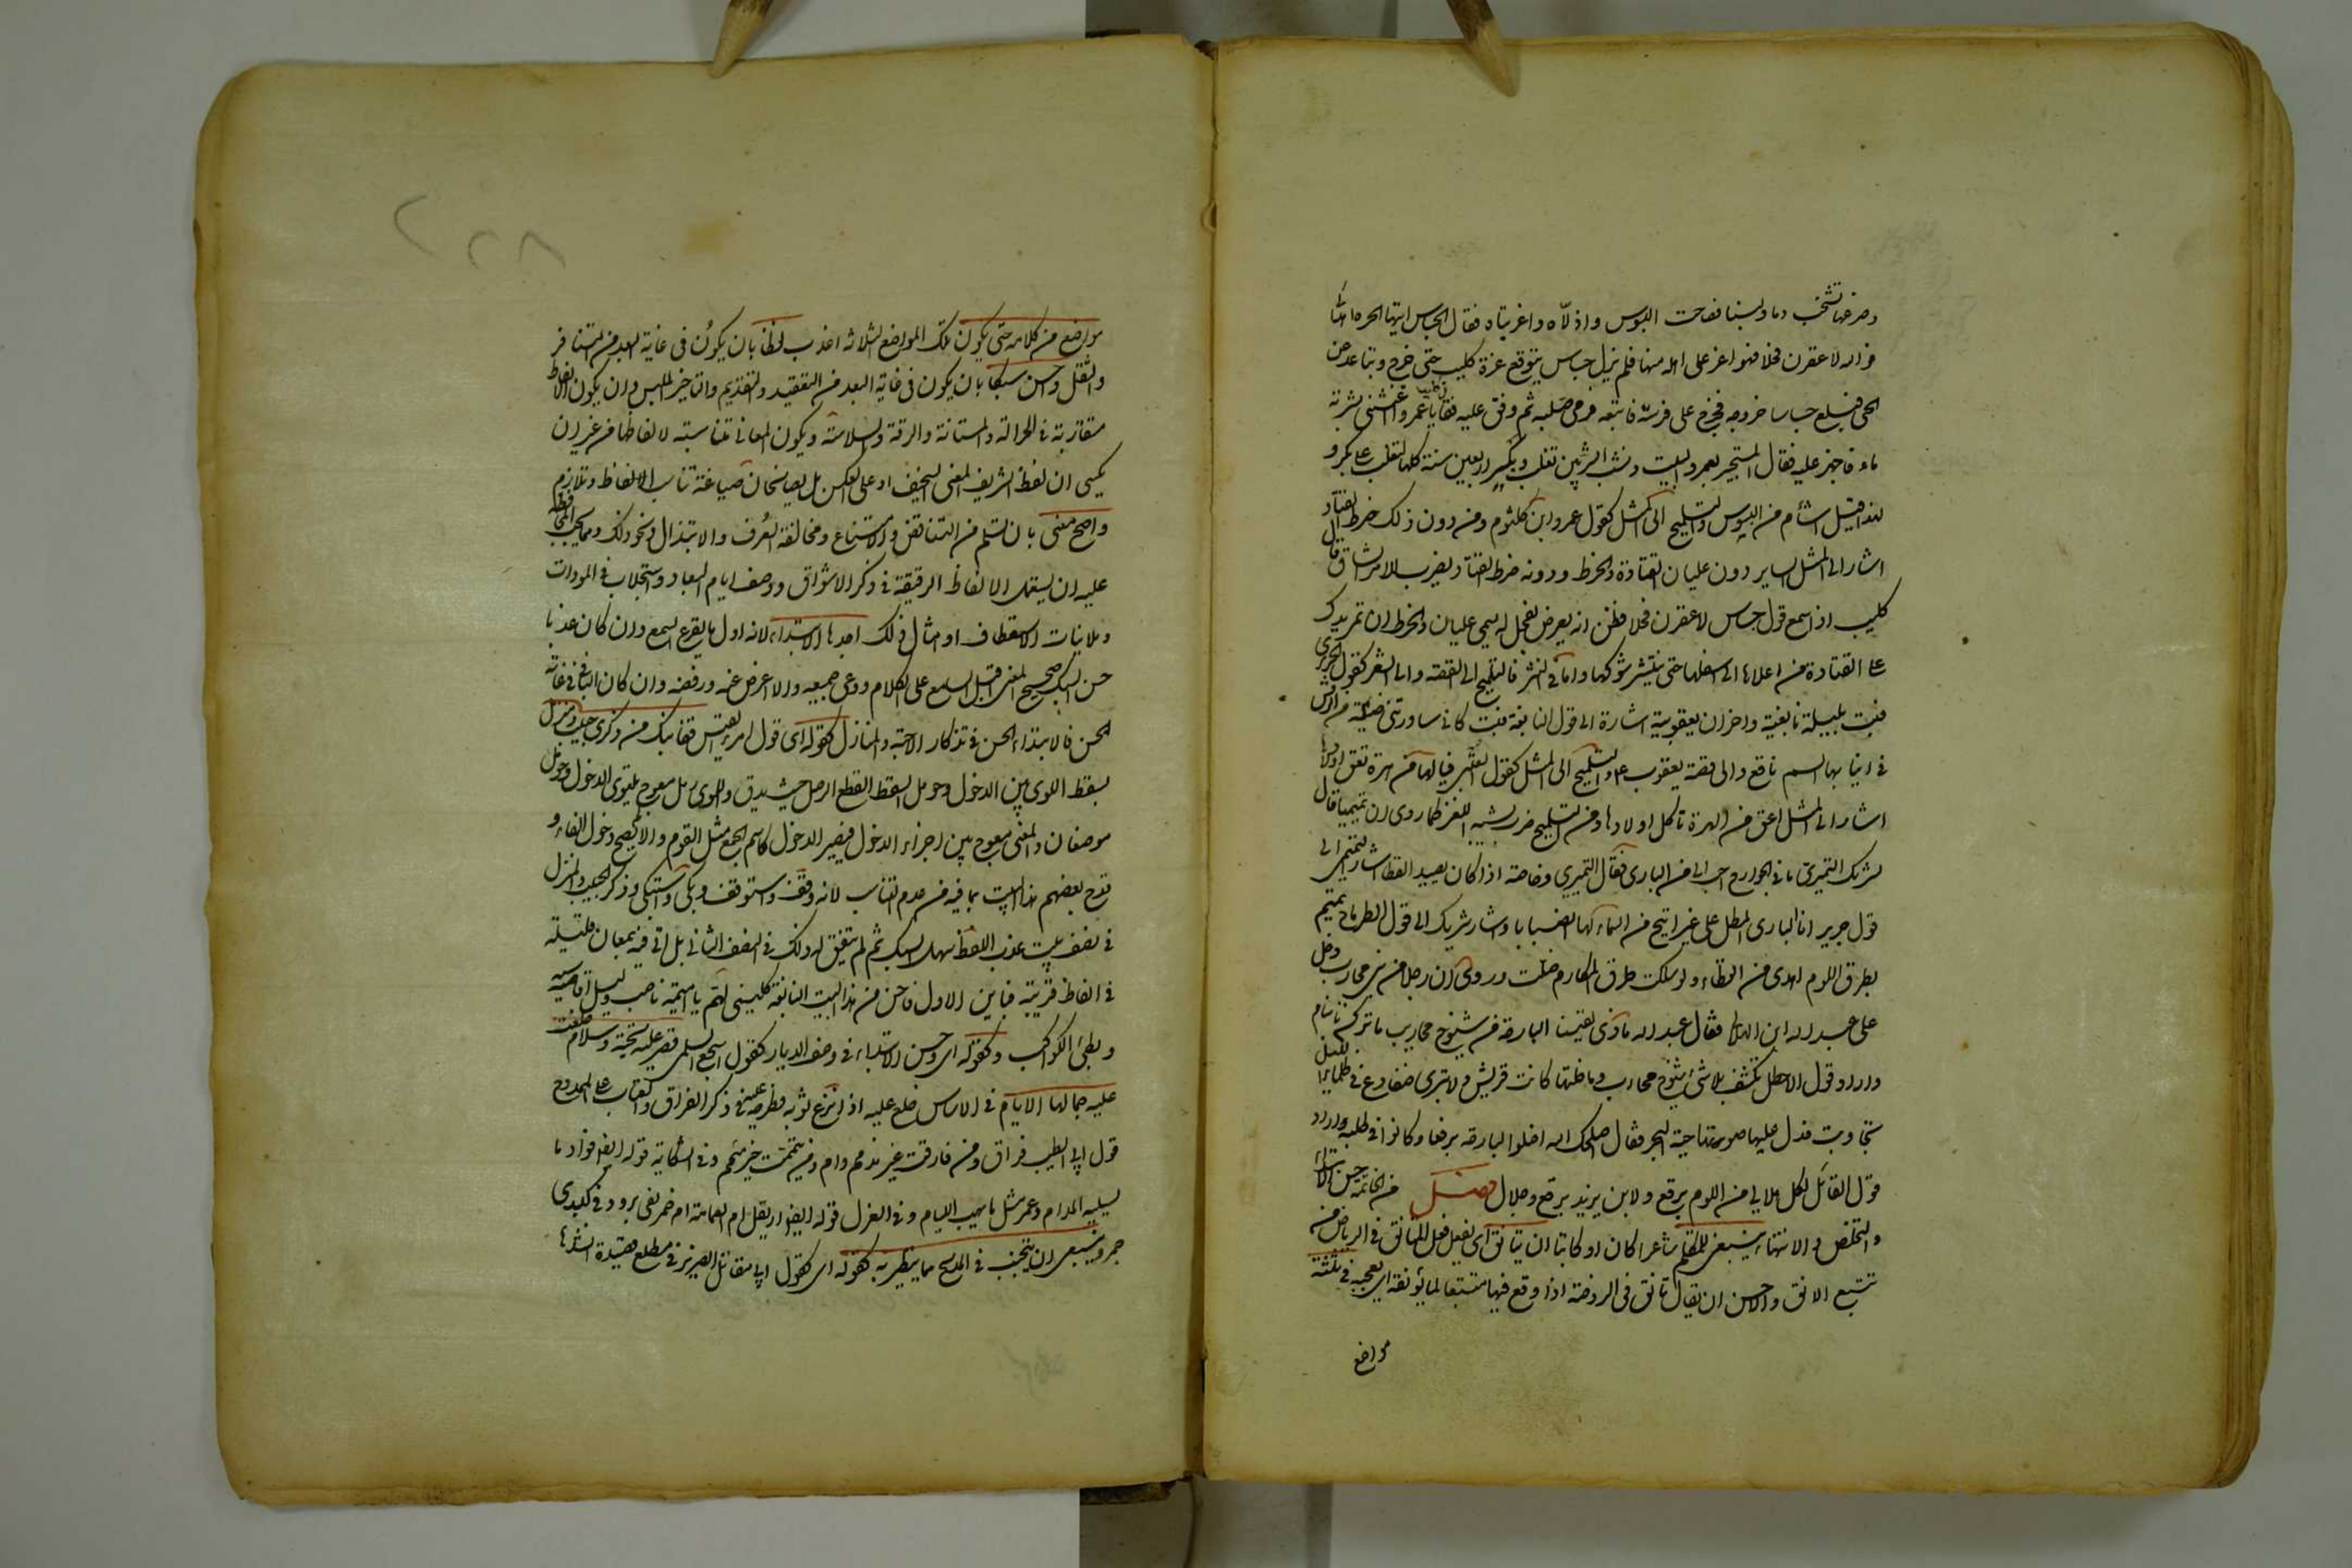 وضرعها تشخب دما ولبنا فصاحت البسوس واذلاه واغربتاه فقال الجساس ايتها الحرة اهدئي
فوالله لاعقرن فحلا هو اعز على اهله منها فلم يزل جساس يتوقع غرة كليب حتى خرج وتباعد عن
الحي فبلغ جساسا خروجه فخرج على فرسه فاتبعه فرمى صلبه ثم وقف عليه فقال يا عمرو اغثني بشربة
ماء فاجهز عليه فقال المستجير بعمرو البيت ونشب الشر بين تغلب وبكر اربعين سنة كلها لتغلب على بكر و
لهذا قيل اشأم من البسوس والتلميح الى المثل كقول عمرو ابن كلثوم ومن دون ذلك خرط القتاد
اشار الى المثل الساير دون عليان القتادة والخرط ودونه خرط القتاد يضرب للامر الشاق قال
كليب اذ سمع قول جساس لاعقرن فحلا فظن انه يعرض بفحل له يسمى عليان والخرط ان تمر يدك
على القتادة من اعلاها الى اسفلها حتى ينتشر شوكها واما في النثر فالتلميح الى القصة والى الشعر كقول الحريري
فبت بليلة نابغية واحزان يعقوبية اشارة الى قول النابغة فبت كاني ساورتني ضئيلة من الرقش
في انيابها السم ناقع والى قصة يعقوب ع والتلميح الى المثل كقول العتبي فيالها من هرة تعق اولادها
اشار الى المثل اعق من الهرة تأكل اولادها ومن التلميح ضرب يشبه اللغز كما روى ان تميميا قال
لشريك النميري ما في الجوارح احب الي من البازي فقال النميري وخاصة اذا كان يصيد القطا اشار التميمي الى
قول جرير انا البازي المطل على نمير اتيح من السماء لها انصبابا واشار شريك الى قول الطرماح تميم
بطرق اللوم اهدى من القطاء ولو سلكت طرق المكارم ضلت وروى ان رجلا من بني محارب دخل
على عبد الله ابن الهلالي فقال عبد الله ماذا لقينا البارحة من شيوخ محارب ما تركونا ننام
واراد قول الاخطل تكش بلا شيء شيوخ محارب وما خلتها كانت تريش ولا تبري ضفادع في ظلماء ليل
تجاوبت فدل عليها صوتها حية البحر فقال اصلحك الله اضلوا البارحة برقعا وكانوا في طلبه واراد
قول القائل لكل هلالي من اللوم برقع ولابن يزيد برقع وجلال فصل من الخاتمة في حسن الابتداء
والتخلص والانتهاء ينبغي للمتكلم شاعرا كان او كاتبا ان يتانق اي يفعل فعل المتانق في الرياض من
تتبع الانق والاحسن ان يقال تانق في الروضة اذا وقع فيها متتبعا لما يونقه اي يعجبه في ثلثة
مواضع
٢٢٨
مواضع من كلامه حتى يكون تلك المواضع الثلاثة اعذب لفظا بان يكون في غاية البعد من التنافر
والثقل واحسن سبكا بان يكون في غاية البعد من التعقيد والتقديم والتاخير الملبس وان يكون الالفاظ
متقاربة في الجزالة والمتانة والرقة والسلاسة ويكون المعاني مناسبة لالفاظها من غير ان
يكسى اللفظ الشريف المعنى السخيف او على العكس بل يصاغان صياغة تناسب الالفاظ وتلازم
واصح معنى بان تسلم من التناقض والامتناع ومخالفة العرف والابتذال ونحو ذلك ومما يجب المحافظة
عليه ان يستعمل الالفاظ الرقيقة في ذكر الاشواق ووصف ايام البعاد واستجلاب المودات
وملاينات الاستعطاف وامثال ذلك احدها الابتداء لانه اول ما يقرع السمع وان كان عذبا
حسن السبك صحيح المعنى اقبل السامع على الكلام ووعى جميعه والا اعرض عنه ورفضه وان كان الباقي في غاية
الحسن فالابتداء الحسن في تذكار الاحبة والمنازل كقوله اي قول امرء القيس قفا نبك من ذكرى حبيب ومنزل
بسقط اللوى بين الدخول وحومل السقط القطع الرمل حيث يدق واللوى رمل معوج يلتوي الدخول وحومل
موضعان والمعنى معوج بين اجزاء الدخول فيصير الدخول كاسم الجمع مثل القوم والا لم يصح دخول الفاء و
قدح بعضهم هذا البيت بما فيه من عدم التناسب لانه وقف واستوقف وبكى واستبكى وذكر الحبيب والمنزل
في نصف بيت عذب اللفظ سهل السبك ثم لم يتفق له ذلك في النصف الثاني بل اتى فيه بمعان قليلة
في الفاظ غريبة فباين الاول فاحسن من هذا البيت النابغة كليني لهم يا اميمة ناصب وليل اقاسيه
وبطئ الكواكب وكقوله اي وحسن الابتداء في وصف الديار كقول اشجع السلمي قصر عليه تحية وسلام خلعت
عليه جمالها الايام في الاساس خلع عليه اذا نزع ثوبه وطرحه عليه وفي ذكر الفراق والعتاب على الممدوح
قول ابي الطيب فراق ومن فارقت غير مذمم وام ومن يممت خير ميمم وفي الشكاية قوله ايضا فؤاد ما
يسليه المدام وعمر مثل ما تهب اللئام وفي الغزل قوله ايضا اريقك ام ماء الغمامة ام خمر بفي برود وفي كبدي
جمر وينبغي ان يتجنب في المدح مما يتطير به كقوله اي كقول ابي مقاتل الضرير في مطلع قصيدة انشدها